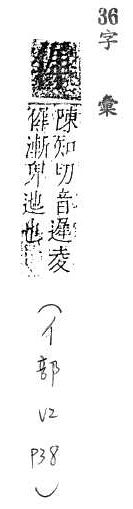 36字彙
陳知切音遲陵
遟漸卑迆也
(亻部
V2
P38)